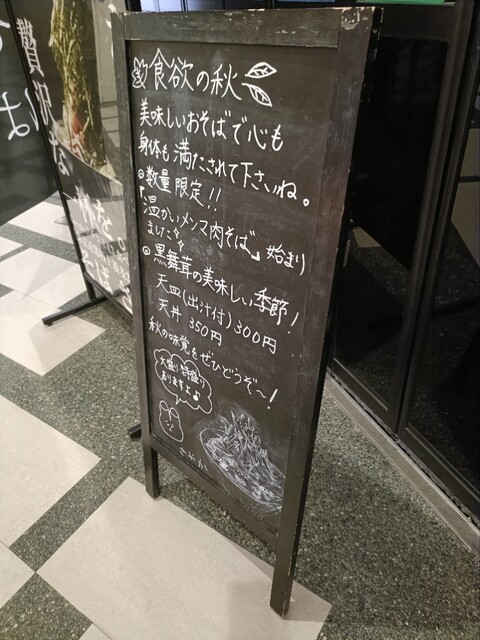 食欲の秋
美味しいおそばで心も
身体も満たされて下さいね。
数量限定!!
「温かいメンマ肉そば」始まり
ました
黒舞茸の美味しい季節!
天皿(出汁付)300円
天丼 350円
秋の味覚をぜひどうぞ〜!
大盛り特盛り
ありますよ♪
贅沢な